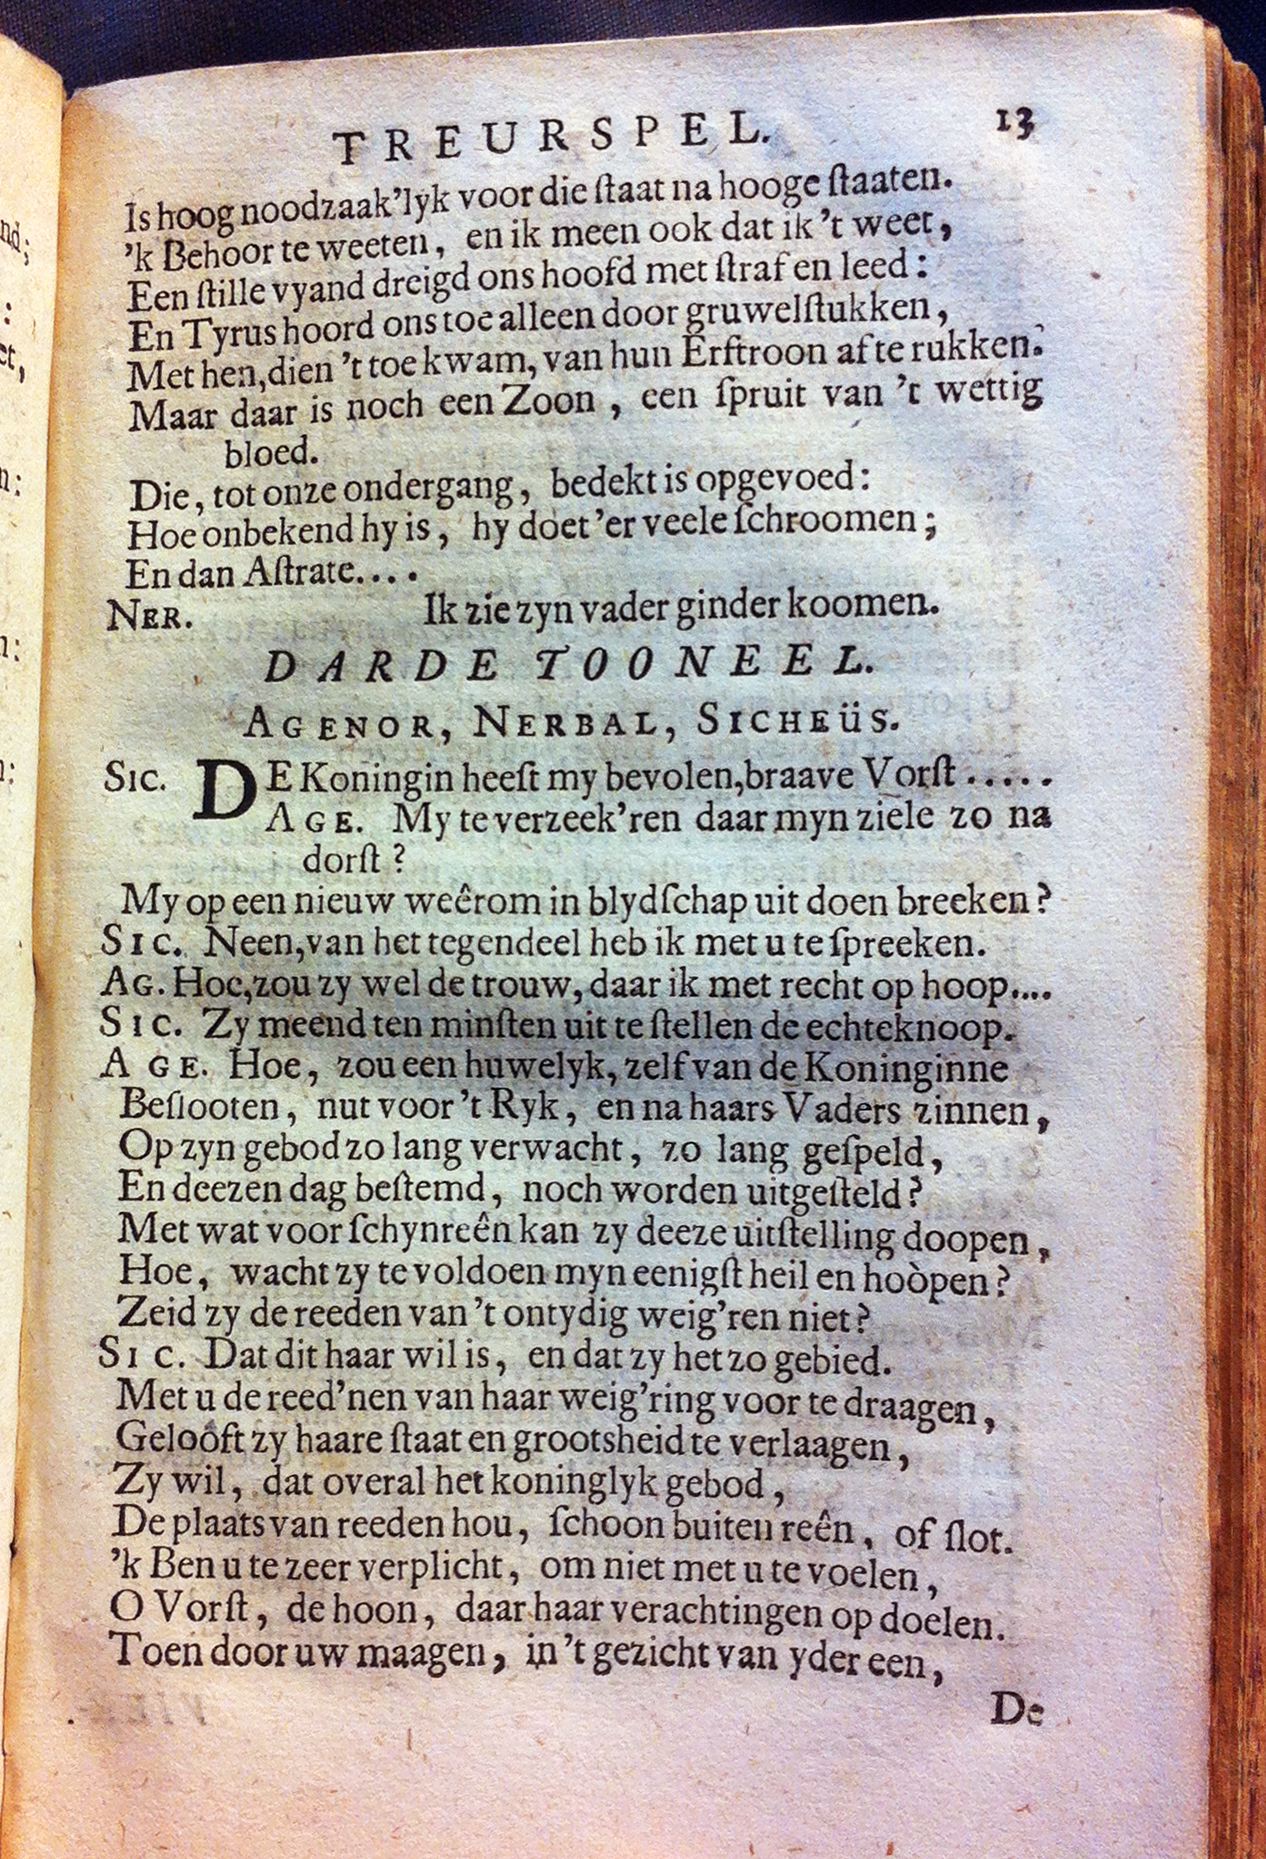 TREURSPEL. 13
Is hoog noodzaak'lyk voor die ſtaat na hooge ſtaaten.
'k Behoor te weeten, en ik meen ook dat ik 't weet,
Een ſtille vyand dreigd ons hoofd met ſtraf en leed:
En Tyrus hoord ons toe alleen door gruwelſtukken,
Met hen, dien 't toe kwam, van hun Erftroon af te rukken.
Maar daar is noch een Zoon, een ſpruit van 't wettig
bloed.
Die, tot onze ondergang, bedekt is opgevoed:
Hoe onbekend hy is, hy doet 'er veele ſchroomen;
En dan Aſtrate....
NER. Ik zie zyn vader ginder koomen.
DARDE TOONEEL.
AGENOR, NERBAL, SICHEÜS.
SIC. DE Koningin heeft my bevolen, braave Vorſt.....
AGE. My te verzeek'ren daar myn ziele zo na
dorſt?
My op een nieuw weêrom in blydſchap uit doen breeken?
SIC. Neen, van het tegendeel heb ik met u te ſpreeken.
AG. Hoe, zou zy wel de trouw, daar ik met recht op hoop....
SIC. Zy meend ten minſten uit te ſtellen de echteknoop.
AGE. Hoe, zou een huwelyk, zelf van de Koninginne
Beſlooten, nut voor 't Ryk, en na haars Vaders zinnen,
Op zyn gebod zo lang verwacht, zo lang geſpeld,
En deezen dag beſtemd, noch worden uitgeſteld?
Met wat voor ſchynreên kan zy deeze uitſtelling doopen,
Hoe, wacht zy te voldoen myn eenigſt heil en hoòpen?
Zeid zy de reeden van 't ontydig weig'ren niet?
SIC. Dat dit haar wil is, en dat zy het zo gebied.
Met u de reed'nen van haar weig'ring voor te draagen,
Geloôft zy haare ſtaat en grootsheid te verlaagen,
Zy wil, dat overal het koninglyk gebod,
De plaats van reeden hou, ſchoon buiten reên, of ſlot.
'k Ben u te zeer verplicht, om niet met u te voelen,
O Vorſt, de hoon, daar haar verachtingen op doelen.
Toen door uw maagen, in 't gezicht van yder een,
De